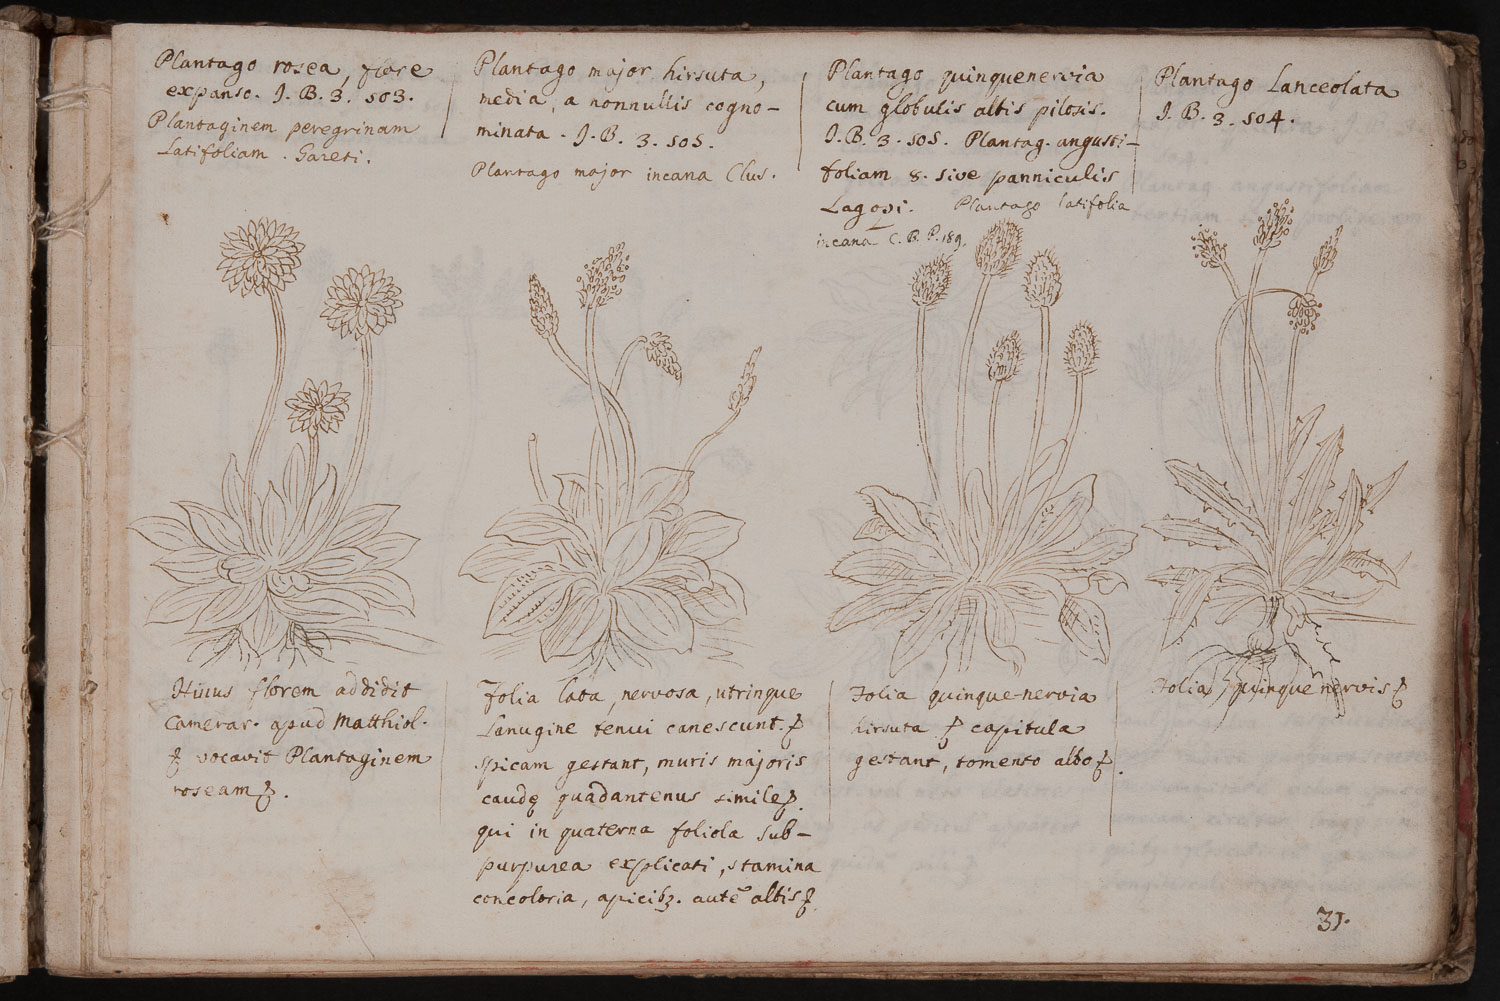 Plantago rosea, flore
expanso. J. B. 3. 503.
Plantaginem peregrinam
Latifoliam. Gareti.
Plantago major hirsuta,
media, a nonnullis cogno-
minata. J. B. 3. 505.
Plantago major incana Clus.
Plantago quinquenervia
cum globulis albis pilosis.
J. B. 3. 505. Plantag. angusti-
foliam 8. sive panniculis
Lagopi. Plantago latifolia
incana C. B. P. 189.
Plantago Lanceolata
J. B. 3. 504.
Huius florem addidit
Camerar. apud Matthiol.
& vocavit Plantaginem
roseam &.
Folia lata, nervosa, utrinque
Lanugine tenui canescunt. &
spicam gestant, muris majoris
caudę quadantenus simile &.
qui in quaterna foliola sub-
purpurea explicati, stamina
concoloria, apicibꝫ. autē albis &.
Folia quinque-nervia
hirsuta & capitula
gestant, tomento albo &.
Folia quinque nervis &
31.